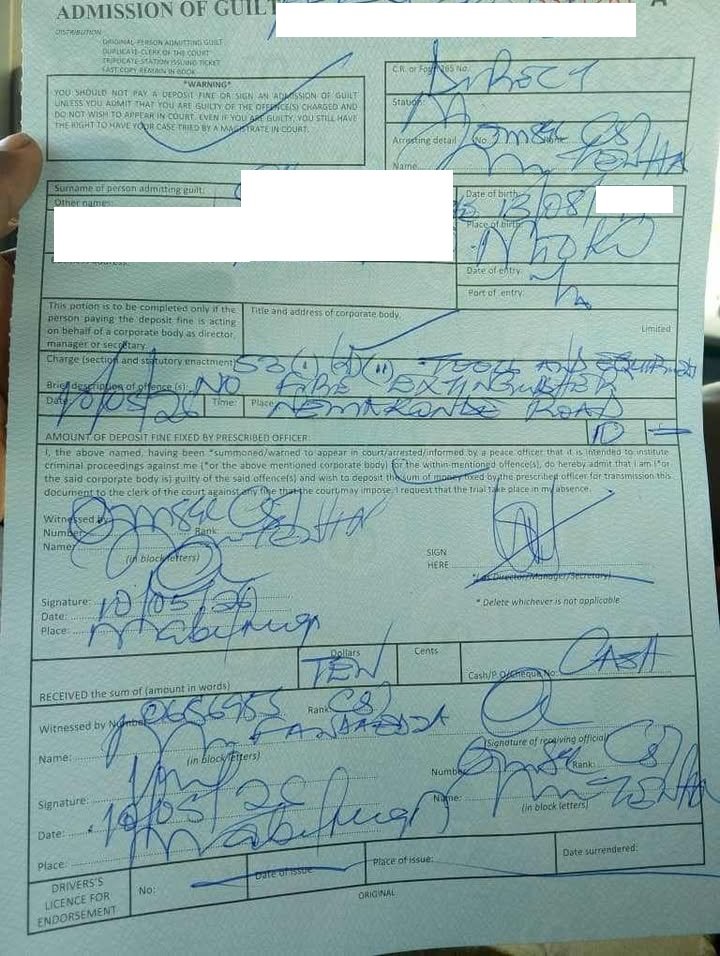 ADMISSION OF GUILT
A
DISTRIBUTION:
ORIGINAL-PERSON ADMITTING GUILT
DUPLICATE-CLERK OF THE COURT
TRIPLICATE-STATION ISSUING TICKET
FAST COPY REMAIN IN BOOK
*WARNING*
YOU SHOULD NOT PAY A DEPOSIT FINE OR SIGN AN ADMISSION OF GUILT
UNLESS YOU ADMIT THAT YOU ARE GUILTY OF THE OFFENCE(S) CHARGED AND
DO NOT WISH TO APPEAR IN COURT. EVEN IF YOU ARE GUILTY, YOU STILL HAVE
THE RIGHT TO HAVE YOUR CASE TRIED BY A MAGISTRATE IN COURT.
C.R. or Form 265 No. DIRECT
Station:
Arresting detail No.
Name: TENHA
Surname of person admitting guilt:
Other names:
Date of birth: 13/08/
Place of birth:
Date of entry:
Port of entry:
This potion is to be completed only if the
person paying the deposit fine is acting
on behalf of a corporate body as director,
manager or secretary.
Title and address of corporate body.
Limited
Charge (section and statutory enactment) TOOLS AND
Brief description of offence (s): NO FIRE EXTINGUISHER
Date: 10/05/26 Time: Place: NEMAKONDE ROAD
AMOUNT OF DEPOSIT FINE FIXED BY PRESCRIBED OFFICER: 10
I, the above named, having been *summoned/warned to appear in court/arrested/informed by a peace officer that it is intended to institute
criminal proceedings against me (*or the above mentioned corporate body) for the within-mentioned offence(s), do hereby admit that I am (*or
the said corporate body is) guilty of the said offence(s) and wish to deposit the sum of money fixed by the prescribed officer for transmission this
document to the clerk of the court against any fine that the court may impose. I request that the trial take place in my absence.
Witnessed by
Number Rank
Name: TENHA
(in block letters)
SIGN
HERE
*(as Director/Manager/Secretary)
* Delete whichever is not applicable
Signature:
Date: 10/05/26
Place:
RECEIVED the sum of (amount in words) TEN Dollars Cents Cash/P.O/Cheque No: CASH
Witnessed by Number Rank
Name:
(in block letters)
(Signature of receiving official)
Signature:
Number Rank:
Date: 10/05/26
Name: TENHA
(in block letters)
Place:
DRIVERS'S
LICENCE FOR
ENDORSEMENT
No:
Date of issue
Place of issue:
Date surrendered:
ORIGINAL